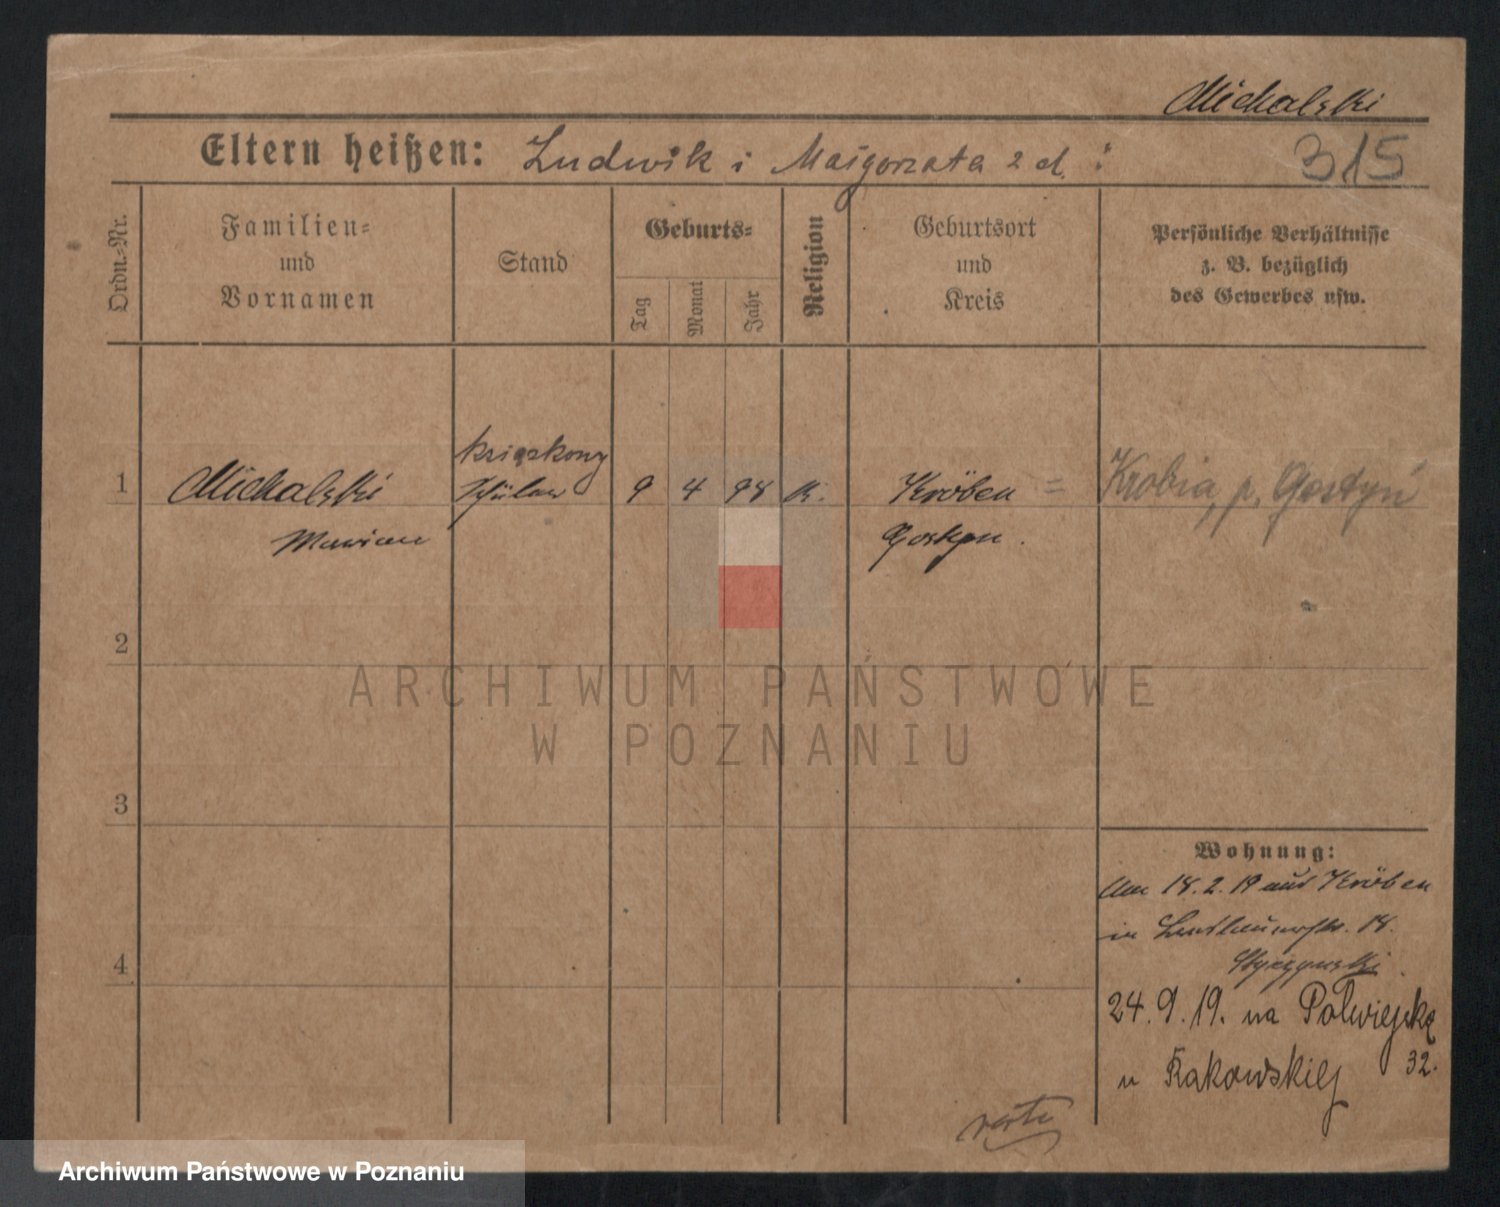 Michalski
Eltern heißen: Ludwik i Małgorzata z d. :
315
Ordn.-Nr.
Familien-
und
Vornamen
Stand
Geburts-
Tag
Monat
Jahr
Religion
Geburtsort
und
Kreis
Persönliche Verhältnisse
z. B. bezüglich
des Gewerbes usw.
książkowy
1 Michalski Schüler 9 4 98 K. Kröben = Krobia, p. Gostyń
Marian Gostyn.
2
ARCHIWUM PAŃSTWOWE
W POZNANIU
3
Wohnung:
Am 18.2.19 aus Kröben
in 18.
4
24.9.19. na Półwiejską
32.
u Rakowskiej
verte
Archiwum Państwowe w Poznaniu